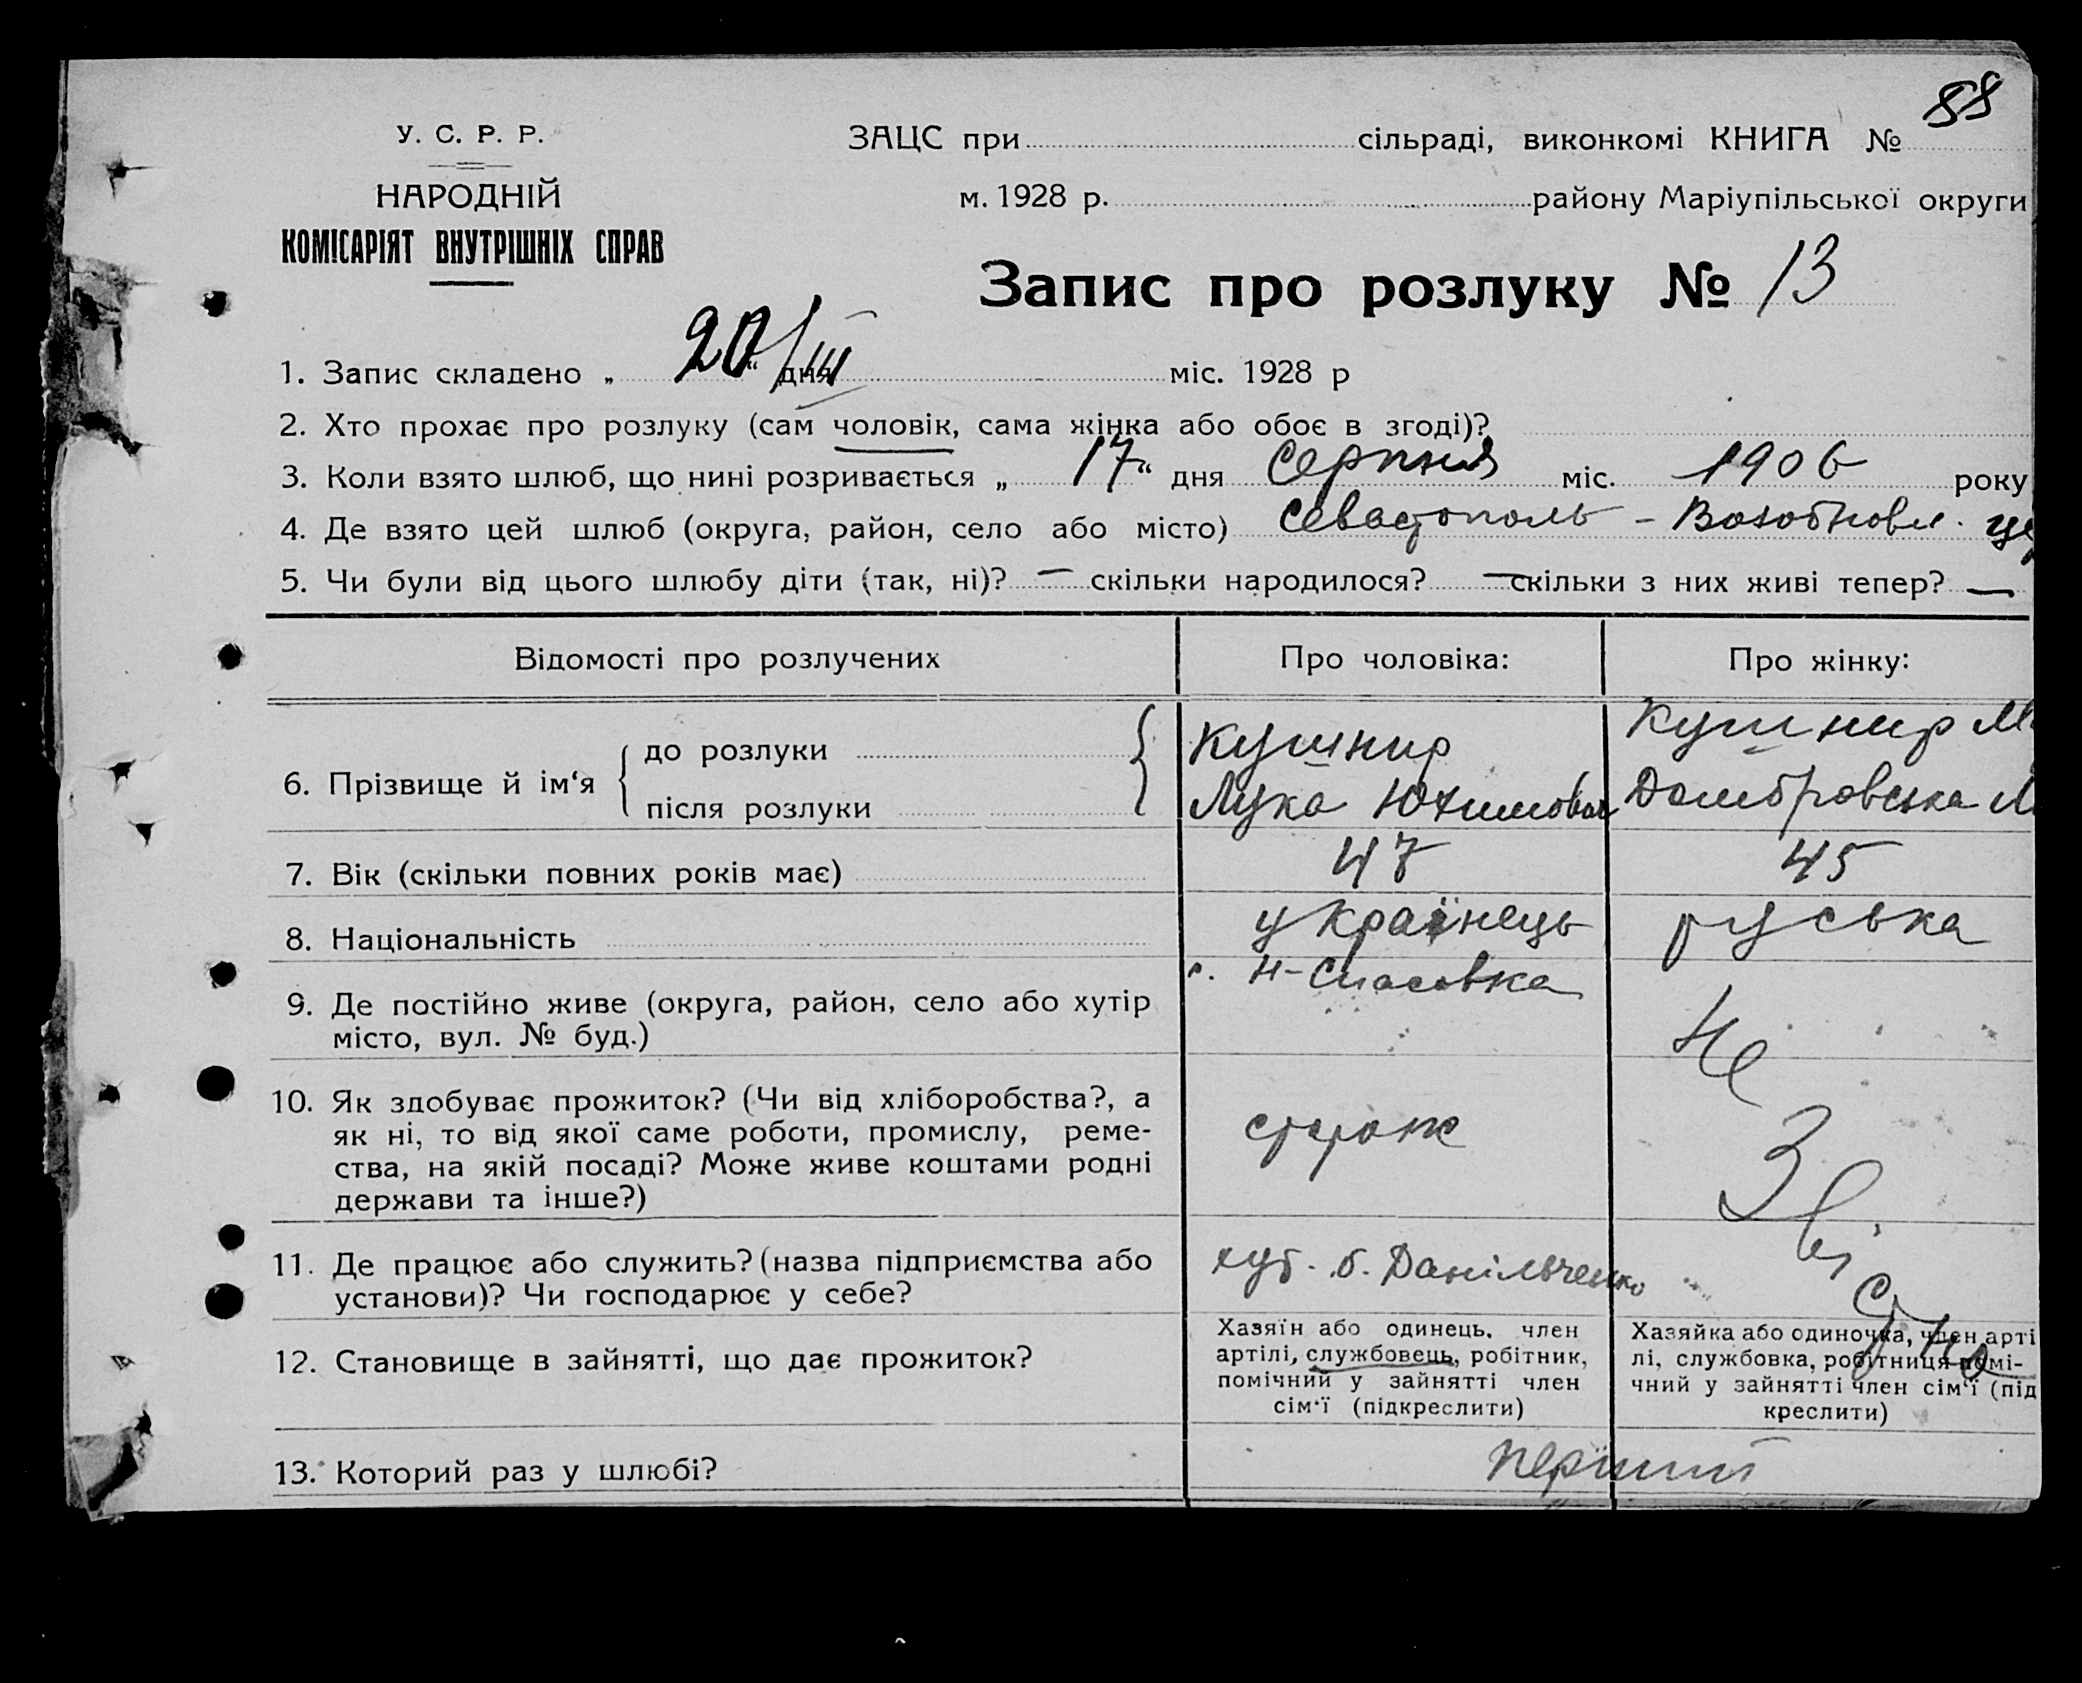 88
У. С. Р. Р.
НАРОДНІЙ
КОМІСАРІЯТ ВНУТРІШНІХ СПРАВ
ЗАЦС при сільраді, виконкомі КНИГА №
м. 1928 р. району Маріупільської округи
Запис про розлуку № 13
1. Запис складено „ 20/III “ дня міс. 1928 р
2. Хто прохає про розлуку (сам чоловік, сама жінка або обоє в згоді)?
3. Коли взято шлюб, що нині розривається „ 17 “ дня Серпня міс. 1906 року
4. Де взято цей шлюб (округа, район, село або місто) Севастополь –
5. Чи були від цього шлюбу діти (так, ні)? — скільки народилося? — скільки з них живі тепер? —
Відомості про розлучених Про чоловіка: Про жінку:
6. Прізвище й ім‘я до розлуки Кушнир Кушнир М
після розлуки Лука Юхимович Домбровська М
7. Вік (скільки повних років має) 47 45
8. Національність українець руська
9. Де постійно живе (округа, район, село або хутір с. Н-Спасовка
місто, вул. № буд.) Не
10. Як здобуває прожиток? (Чи від хліборобства?, а
як ні, то від якої саме роботи, промислу, реме-
ства, на якій посаді? Може живе коштами родні
держави та інше?)
сторож
Зві
сно
11. Де працює або служить? (назва підприємства або хут. б. Данільченко
установи)? Чи господарює у себе?
12. Становище в зайнятті, що дає прожиток?
Хазяїн або одинець. член
артілі, службовець, робітник,
помічний у зайнятті член
сім‘ї (підкреслити)
Хазяйка або одиночка, член арті
лі, службовка, робітниця помі-
чний у зайнятті член сім‘ї (під
креслити)
13. Которий раз у шлюбі? перший